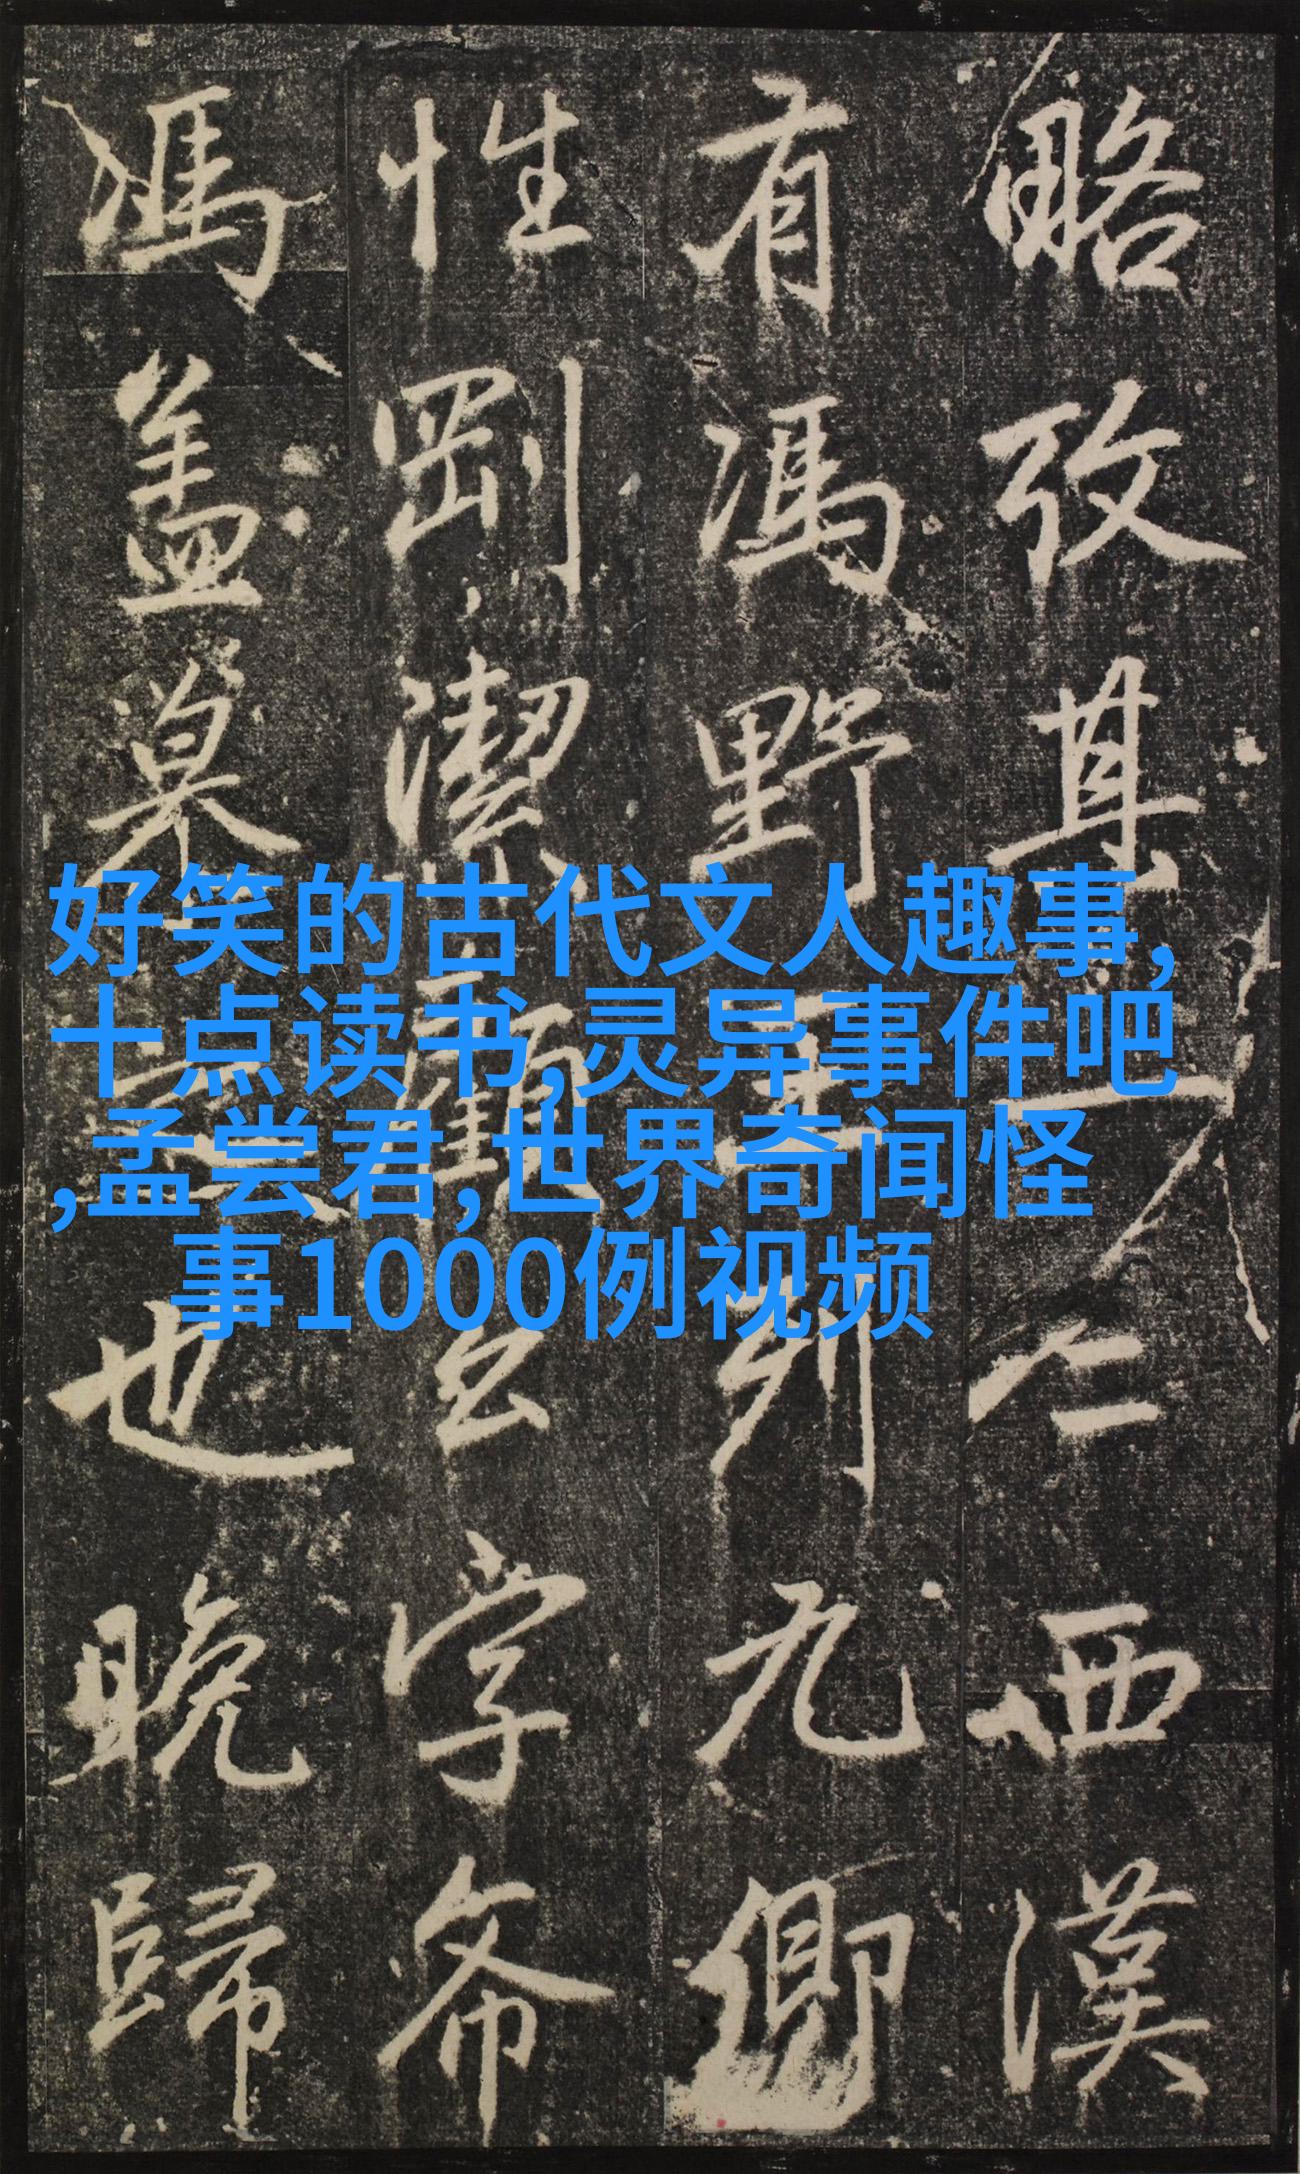 好笑的古代文人趣事,
十点读书,灵异事件吧
,孟尝君,世界奇闻怪
事1000例视频
略攷其人仁西漢
有馮野王列九卿
性剛潔字
馮蓋慕也晚歸